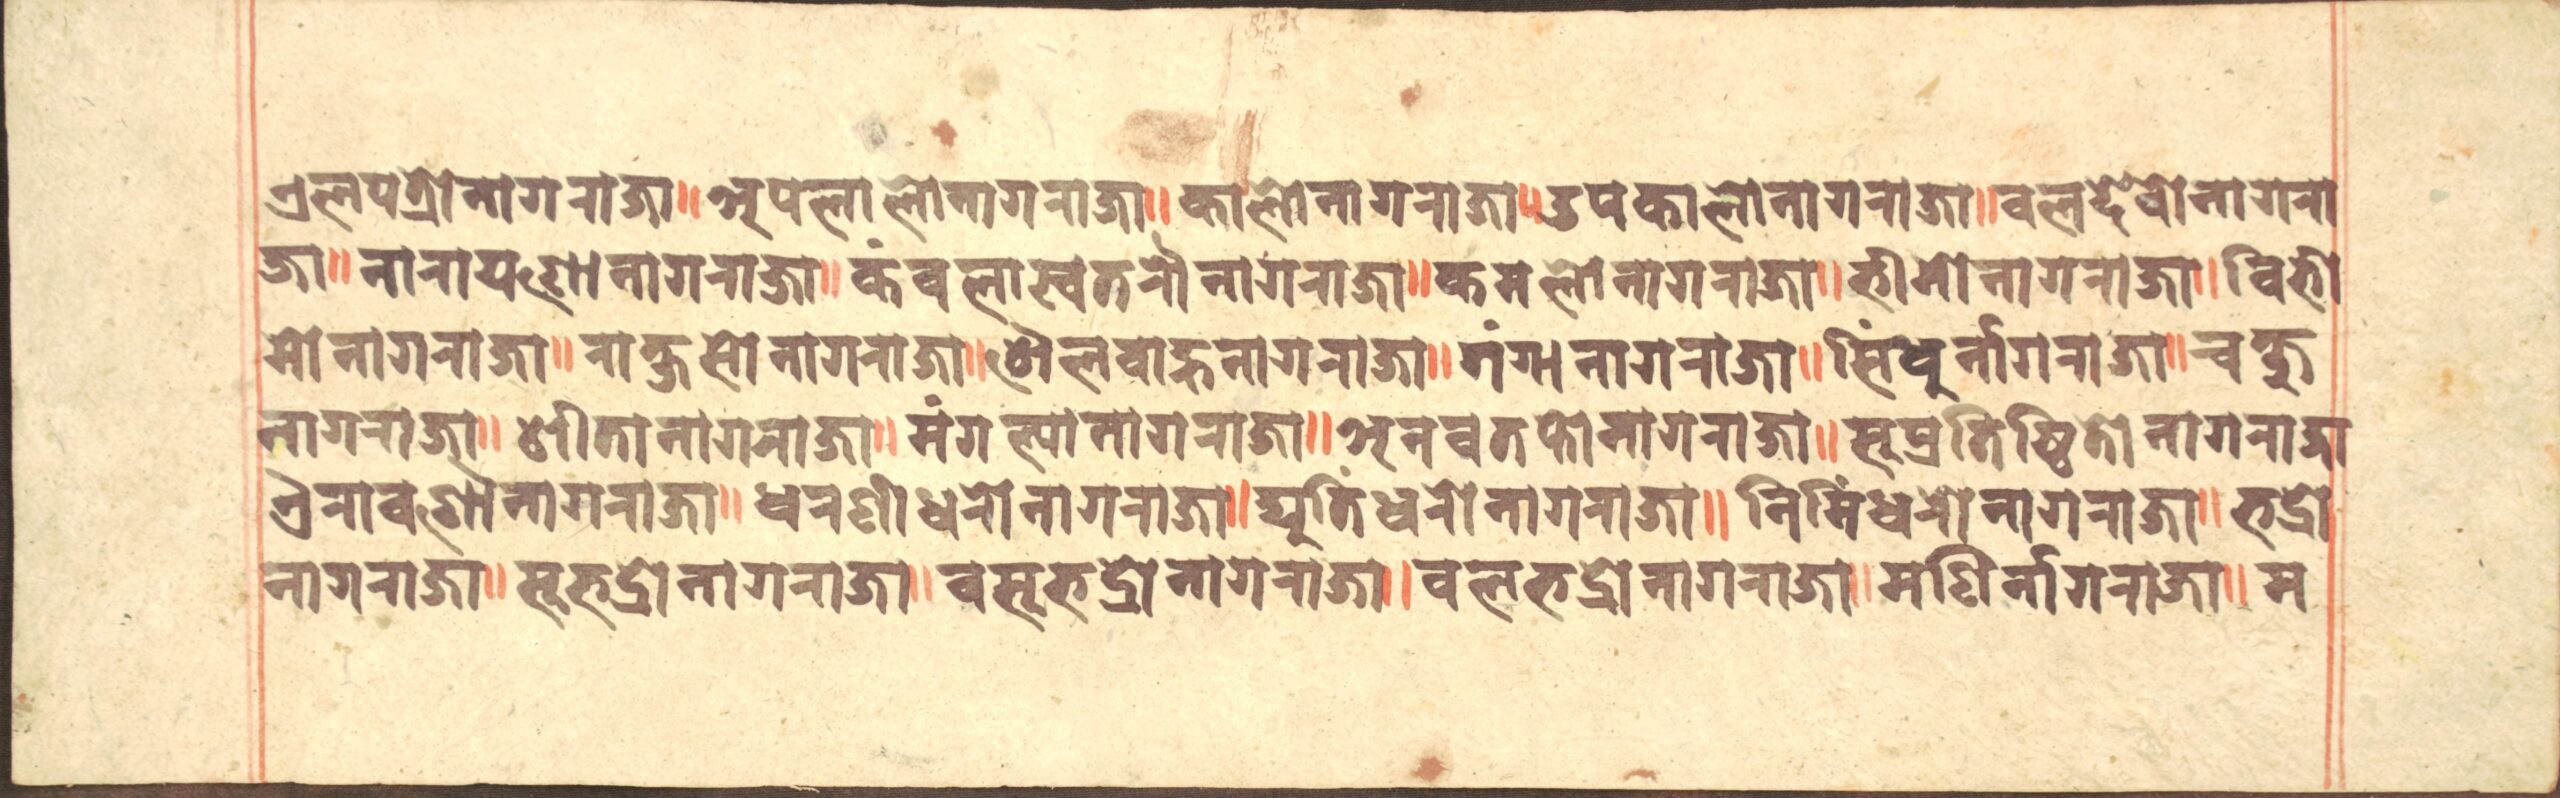 एलपत्रो नागराजा॥ अपलालो नागराजा॥ कालो नागराजा॥ उपकालो नागराजा॥ वलदेवो नागरा
जा॥ नारायणो नागराजा॥ कंवलास्वतरौ नागराजा॥ कमलो नागराजा॥ भीमो नागराजा॥ विभी
मो नागराजा॥ राक्षसो नागराजा॥ शैलवाहु नागराजा॥ गंगा नागराजा॥ सिंधुर्नागराजा॥ वक्षु
नागराजा॥ शीता नागराजा॥ मंगल्या नागराजा॥ अनवतप्तो नागराजा॥ सुप्रतिष्ठितो नागराजा
ऐरावणो नागराजा॥ धरणींधरो नागराजा॥ द्युतिंधरो नागराजा॥ निमिंधरो नागराजा॥ भद्रो
नागराजा॥ सुभद्रो नागराजा॥ वसुभद्रो नागराजा॥ वलभद्रो नागराजा॥ मणिर्नागराजा॥ म